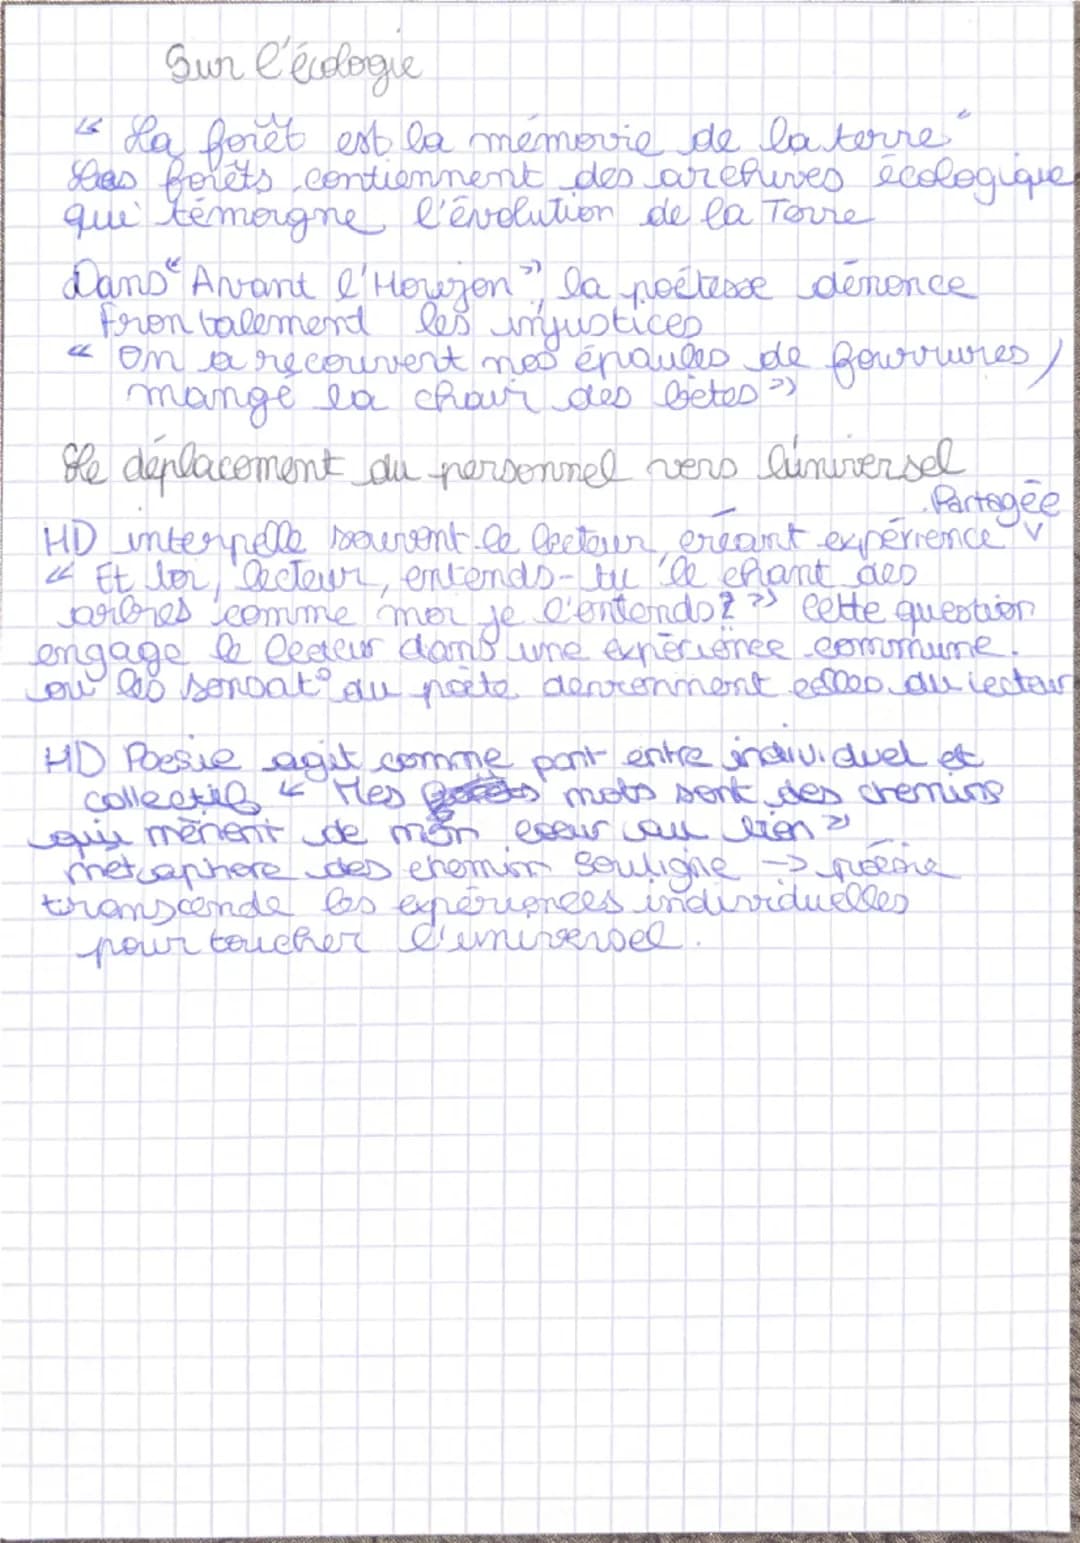 Sur l'écologie
" La forêt est la mémorie de la terre "
Les forêts contiennent des archives écologique
qui témorgne l'évolution de la Terre
Dans " Avant l'Horizon ", la poétesse dénonce
frontalemend les injustices
« On a recouvert nos épaules de fourrures /
mangé la chair des bêtes »
Le déplacement du personnel vers l'universel
Partagée
HD interpelle souvent le lecteur, créant expérience v
« Et toi, lecteur, entends-tu le chant des
arbres comme moi je l'entends ? » Cette question
engage le lecteur dans une expérience commune.
ou les sensat° du poète deviennent celles du lecteur
HD Poesie agit comme pont entre individuel et
collectif « Mes mots sont des chemins
qui mènent de mon coeur au tien »
métaphore des chemin souligne → poésie
transcende les expériences individuelles
pour toucher l'universel.